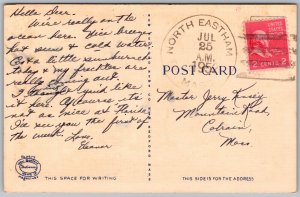 Hello Dear.
We're really on the
ocean here. Nice breeze
hot sun & cold water.
a little sunburned
today & my
really
I you'd like it
here. Of course its
not as nice as Florida.
I'll see you the first of
the week. Love,
Eleanor
THIS SPACE FOR WRITING
NORTH EASTHAM
JUL
25
A.M.
POST CARD
UNITED STATES
2 CENTS 2
Master Jerry
Mountain Road
Colrain,
Mass.
THIS SIDE IS FOR THE ADDRESS